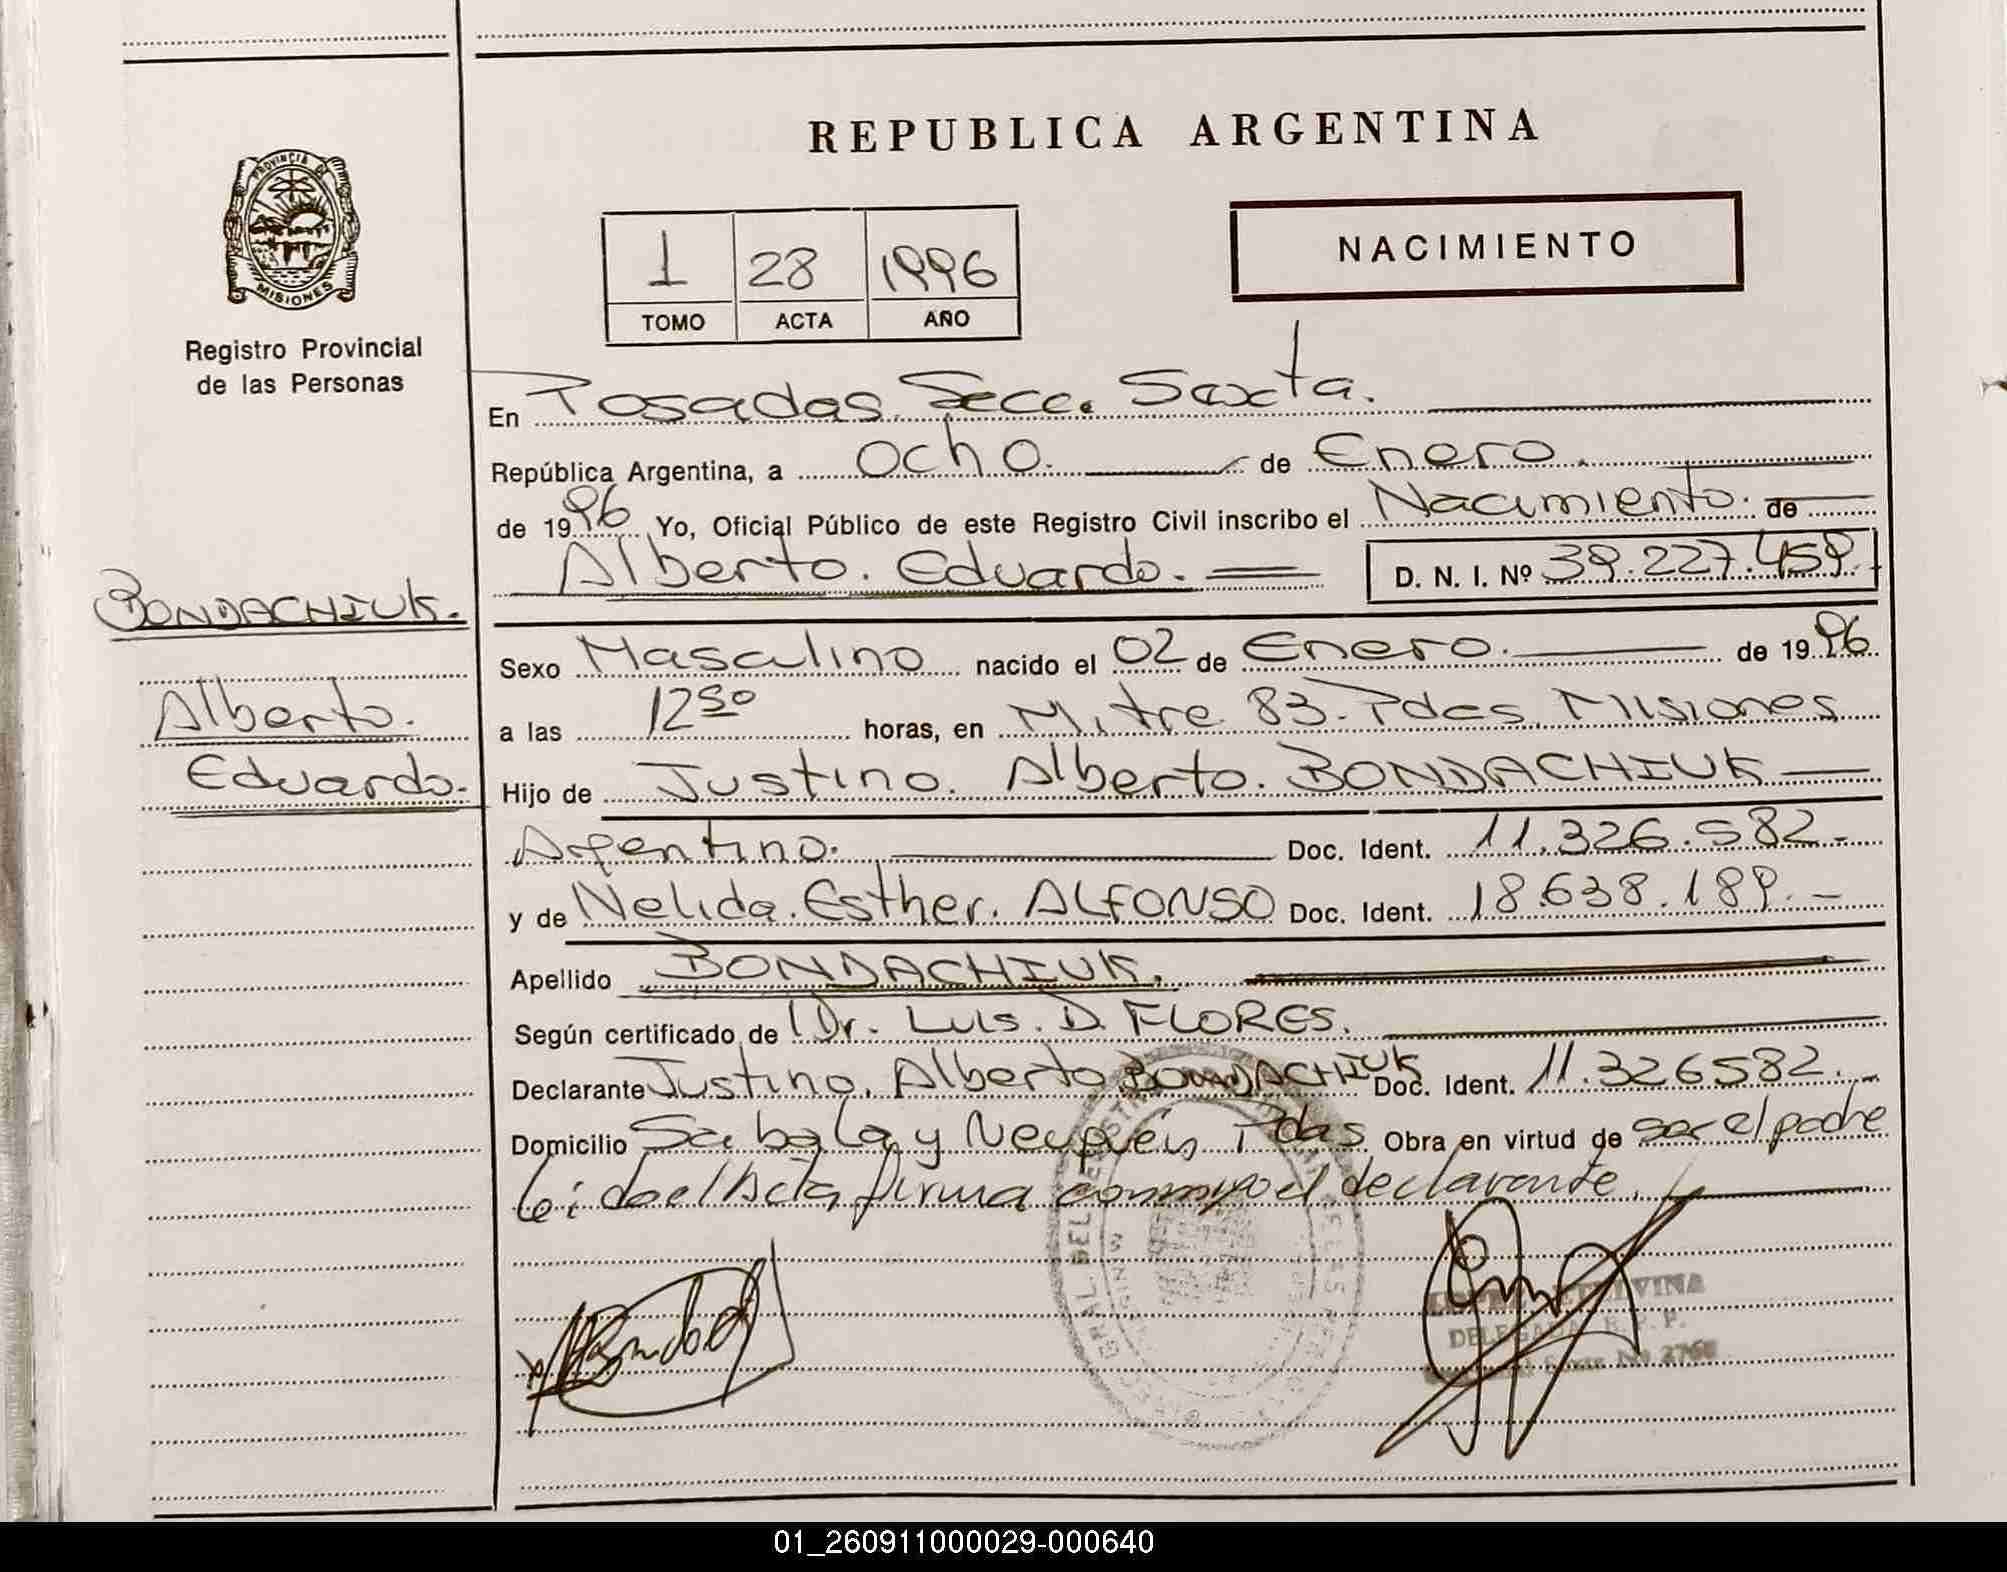 REPUBLICA ARGENTINA
PROVINCIA DE
MISIONES
Registro Provincial
de las Personas
1 28 1996
TOMO ACTA AÑO
NACIMIENTO
En Posadas. Secc. Sexta.
República Argentina, a ocho. de Enero.
de 1996 Yo, Oficial Público de este Registro Civil inscribo el Nacimiento. de
Alberto. Eduardo. D. N. I. Nº 39.227.459.
BONDACHIUK.
Alberto.
Eduardo.
Sexo Masculino nacido el 02 de Enero. de 1996
a las 12 50 horas, en Mitre 83. Pdas. Misiones
Hijo de Justino. Alberto. BONDACHIUK
Argentino. Doc. Ident. 11.326.582.-
y de Nelida. Esther. ALFONSO Doc. Ident. 18.638.189.-
Apellido BONDACHIUK.
Según certificado de Dr. Luis. D. FLORES.
Declarante Justino. Alberto BONDACHIUK Doc. Ident. 11.326582.-
Domicilio y Neuquén Pdas Obra en virtud de ser el padre
leida el Acta firma conmigo el declarante.
DELEGADA R. P. P.
01_260911000029-000640